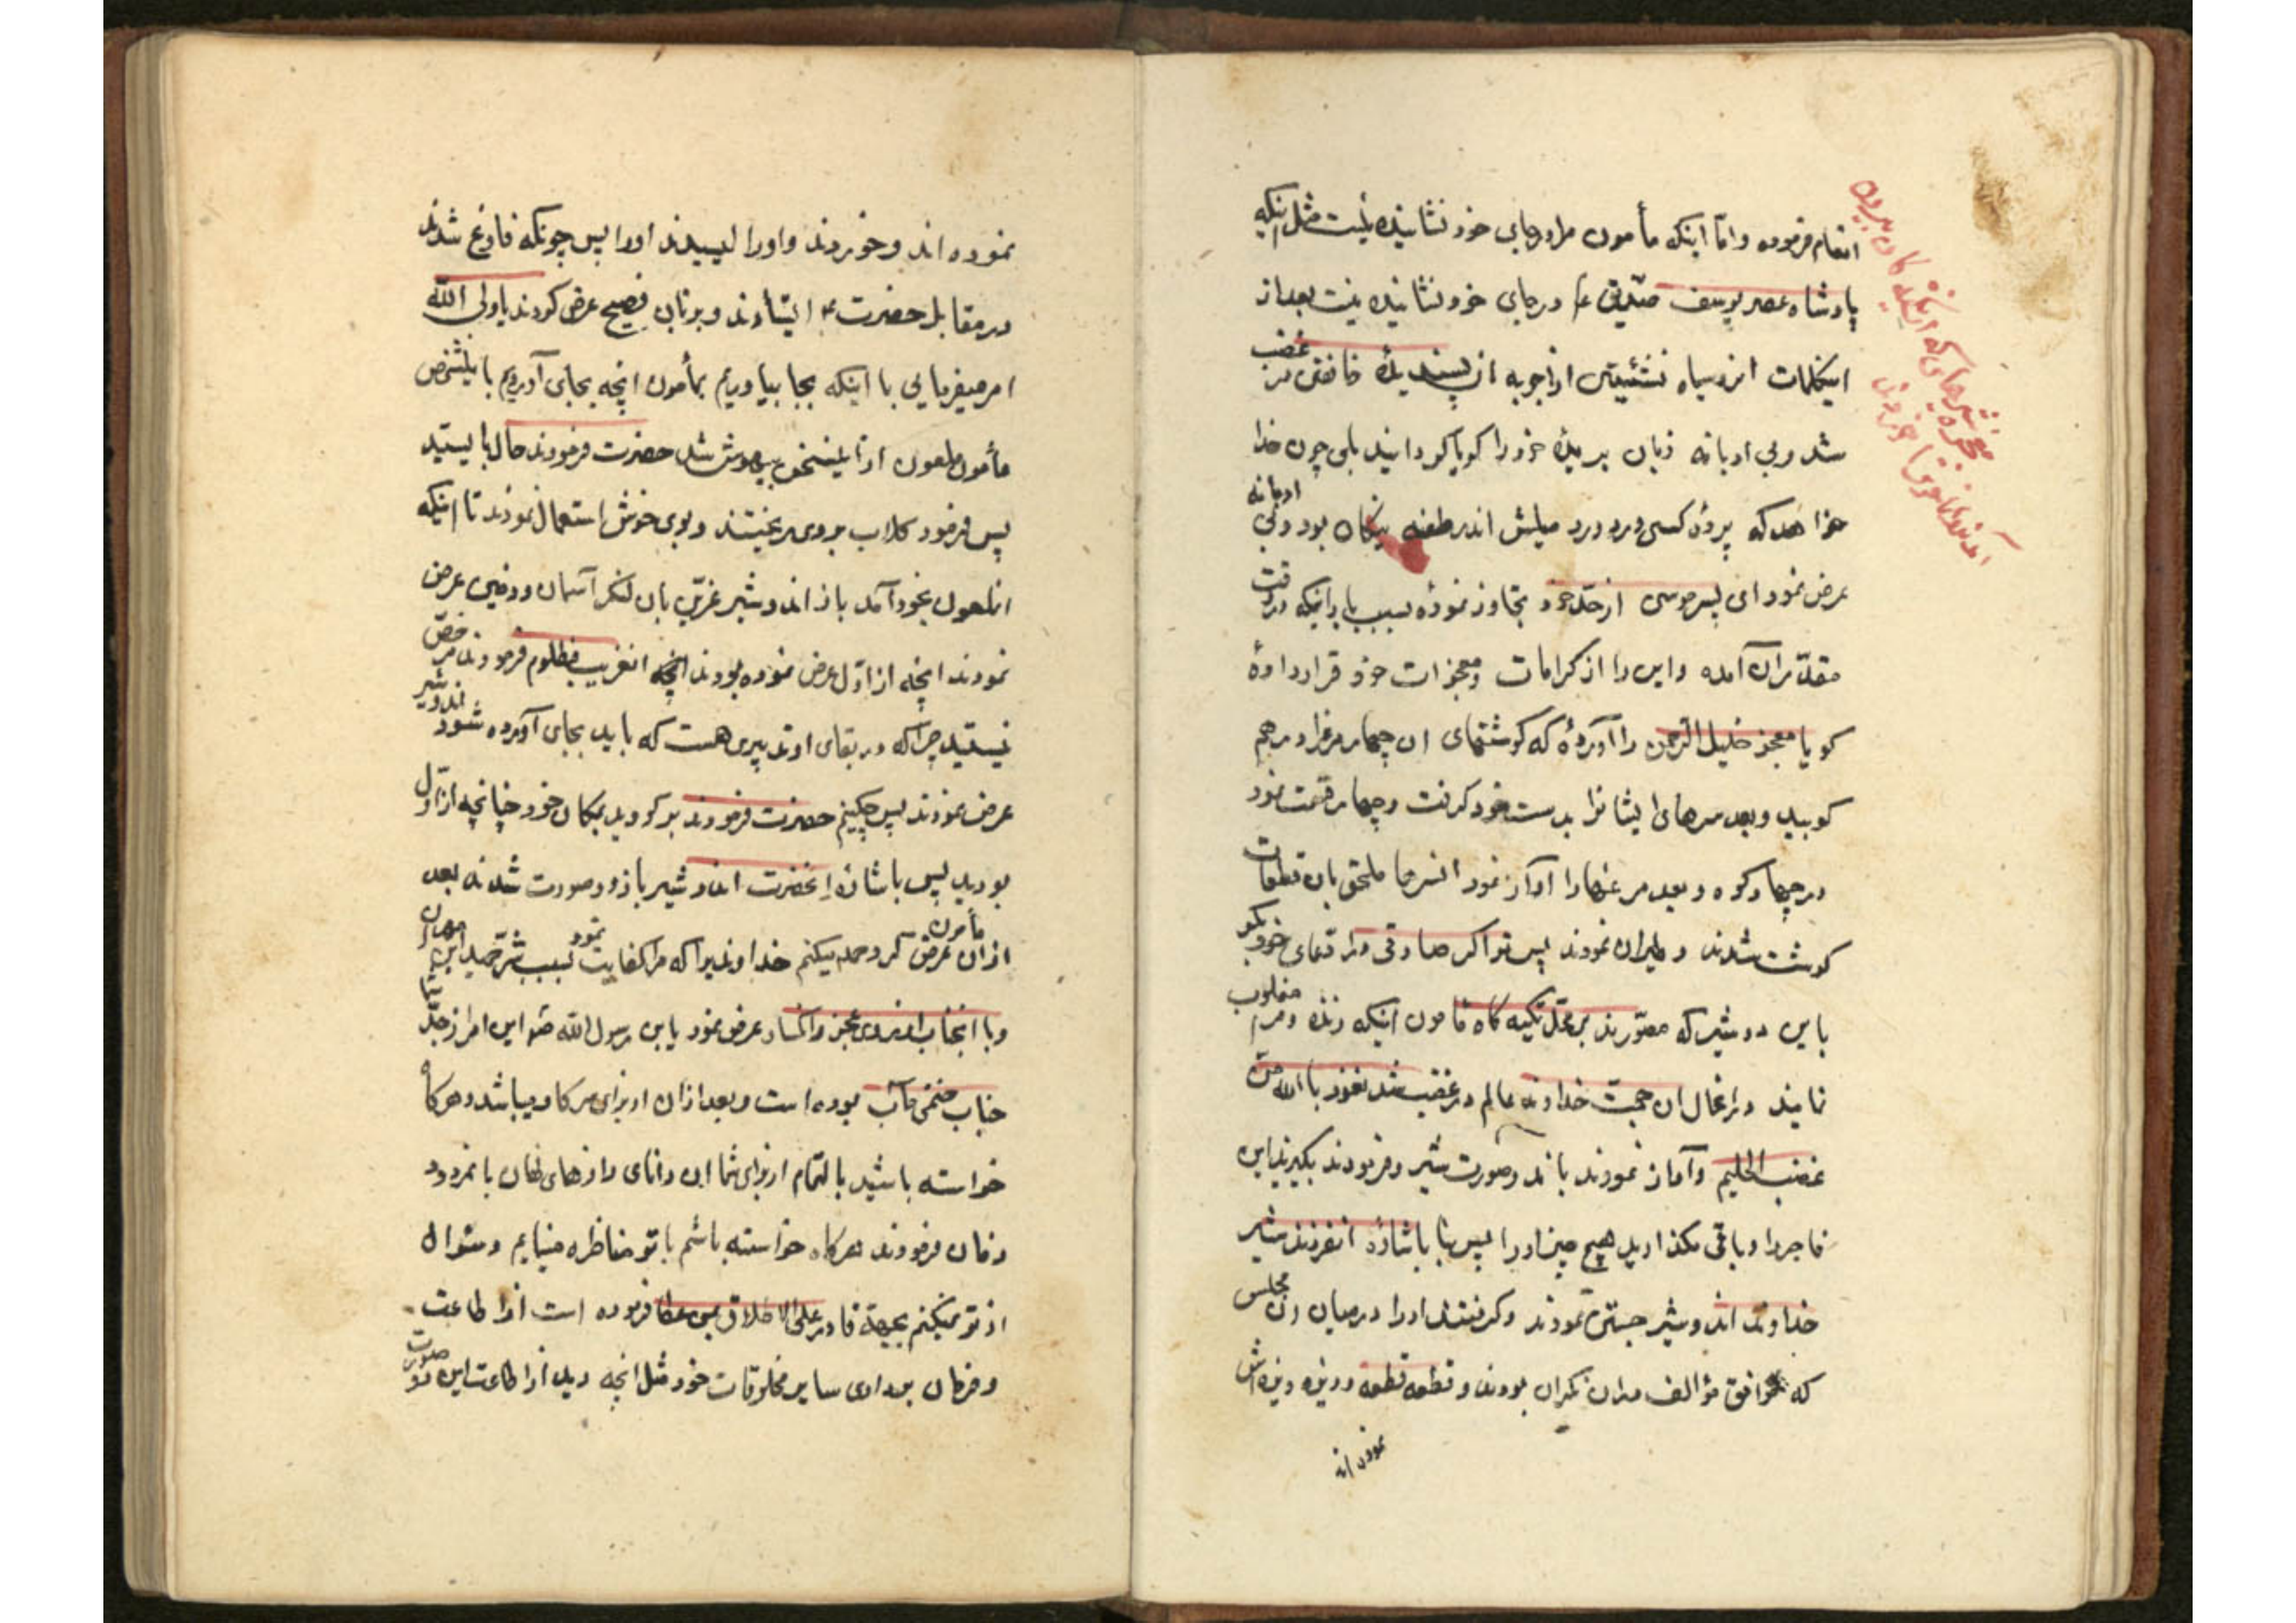 انعام فرموده و امّا اینکه مأمون مرا در جای خود نشانیده نیست مثل اینکه
پادشاه عصر یوسف صدّیق ع در جای خود نشانیده نیست بعد از
اینکلمات از اجوبه پسندیده غضب
شد و بی ادبانه زبان بریده خود را کویا کردانید بلی چون خدا
خواهد که پردهٔ کسی درد میلش اندر طعنه نیکان بود و بی ادبانه
عرض نمود ای پسر موسی از حدّ خود تجاوز نمودهٔ بسبب بارانیکه در وقت
مقدّر آن آمده و این را از کرامات و معجزات خود قرار دادهٔ
کویا معجز خلیل الرّحمن را آوردهٔ که کوشتهای ان چهار مرغ را در هم
کوبید و بعد سرهای ایشانرا بدست خود کرفت و چهار قسمت نمود
در چهار کوه و بعد مرغها را آواز نمود انسرها ملحق بان قطعات
کوشت شدند و طیران نمودند پس تو اکر صادقی در ادّعای خود بکو
باین دو شیر که مصوّرند بر محلّ تکیه کاه مأمون اینکه زنده و مرا مغلوب
نمایند در انحال ان حجّت خداوند عالم در غضب شد نعوذ باالله من
غضب الحلیم و آواز نمودند باند وصورت شیر و فرمودند بکیرید این
فاجر را و باقی مکذارید هیچ چیز او را پس بنا باشارهٔ انفرزند شیر
خداوند اندو شیر جستن نمودند و کرفتند او را در میان ان مجلس
که موافق مؤالف دران نکران بودند و قطعه قطعه و ریزه ریزه اش
نموده اند
معجزه شیرهای که از تکیه کاه بیرون
نموده اند و خوردند و اورا لیسیدند اورا پس چونکه فارغ شدند
در مقابل حضرت ع ایستادند و بزبان فصیح عرض کردند یا ولی الله
امر میفرمایی با اینکه بجا بیاوریم بمأمون انچه بجای آوردیم باینشخص
مأمون ملعون ازاینسخن بیهوش شد حضرت فرمودند حال بایستید
پس فرمود کلاب بروی ریختند و بوی خوش استعمال نمودند تا اینکه
انملعون بخود آمد باز اندو شیر غرّین بان لنکر آسمان و زمین عرض
نمودند انچه از اوّل عرض نموده بودند انغریب مظلوم فرمودند مرخصّ
نیستید چرا که در بقای او تدبیری هست که باید بجای آورده شود اندو شیر
عرض نمودند پس چکنیم حضرت فرمودند بر کردید بمکان خود چنانچه از اوّل
بودید پس باشارهٔ انحضرت اندو شیر باز دو صورت شدند بعد
ازان مأمون عرض کرد حمد میکنم خداوندیرا که مرا کفایت نمود بسبب شرّ حمید ابن مهران
و با انجناب از روی عجز و انکسار عرض نمود یا بن رسول الله ص این امر از جدّ شما
جناب ختمی مآب بوده است و بعد ازان از برای سرکار میباشد و هرکاه
خواسته باشید بالتّمام از برای شما ان دانای رازهای نهان با نمرود
زمان فرمودند هرکاه خواسته باشم با تو مناظره مینمایم و سئوال
از تو نمیکنم بجهة قادر علی الاطلاق بمن عطا فرموده است از اطاعت
و فرمان برداری سایر مخلوقات خود مثل انچه دید از اطاعت این دو صورت